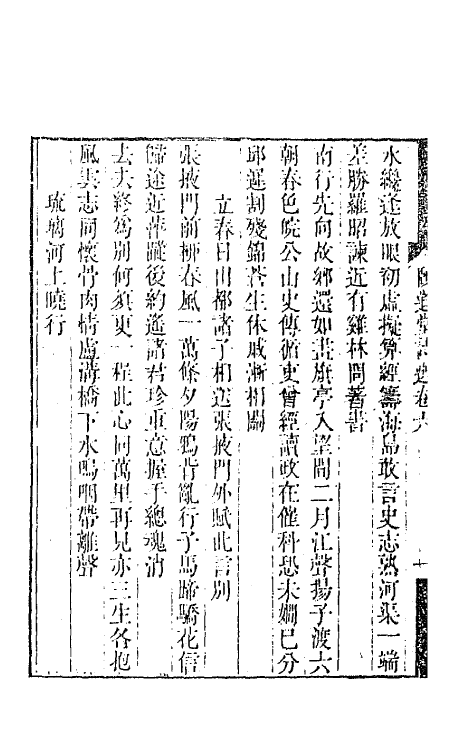 堂詩選卷六　十
水纔逢放眼初虛擬算經籌海島敢言史志熟河渠一端
差勝羅昭諫近有雞林問著書
南行先向故鄉還如畫旗亭入望間二月江聲揚子渡六
朝春色皖公山史傳循吏曾經讀政在催科恐未嫻已分
邱遲割殘錦蒼生休戚漸相關
立春日出都諸子相送張掖門外賦此言別
張掖門前柳春風一萬條夕陽鴉背亂行子馬蹄驕花信
歸途近萍蹤後約遙諸君珍重意握手總魂消
去去終為別何須更一程此心同萬里再見亦三生各抱
風雲志同懷骨肉情盧溝橋下水嗚咽帶離聲
琉璃河上曉行